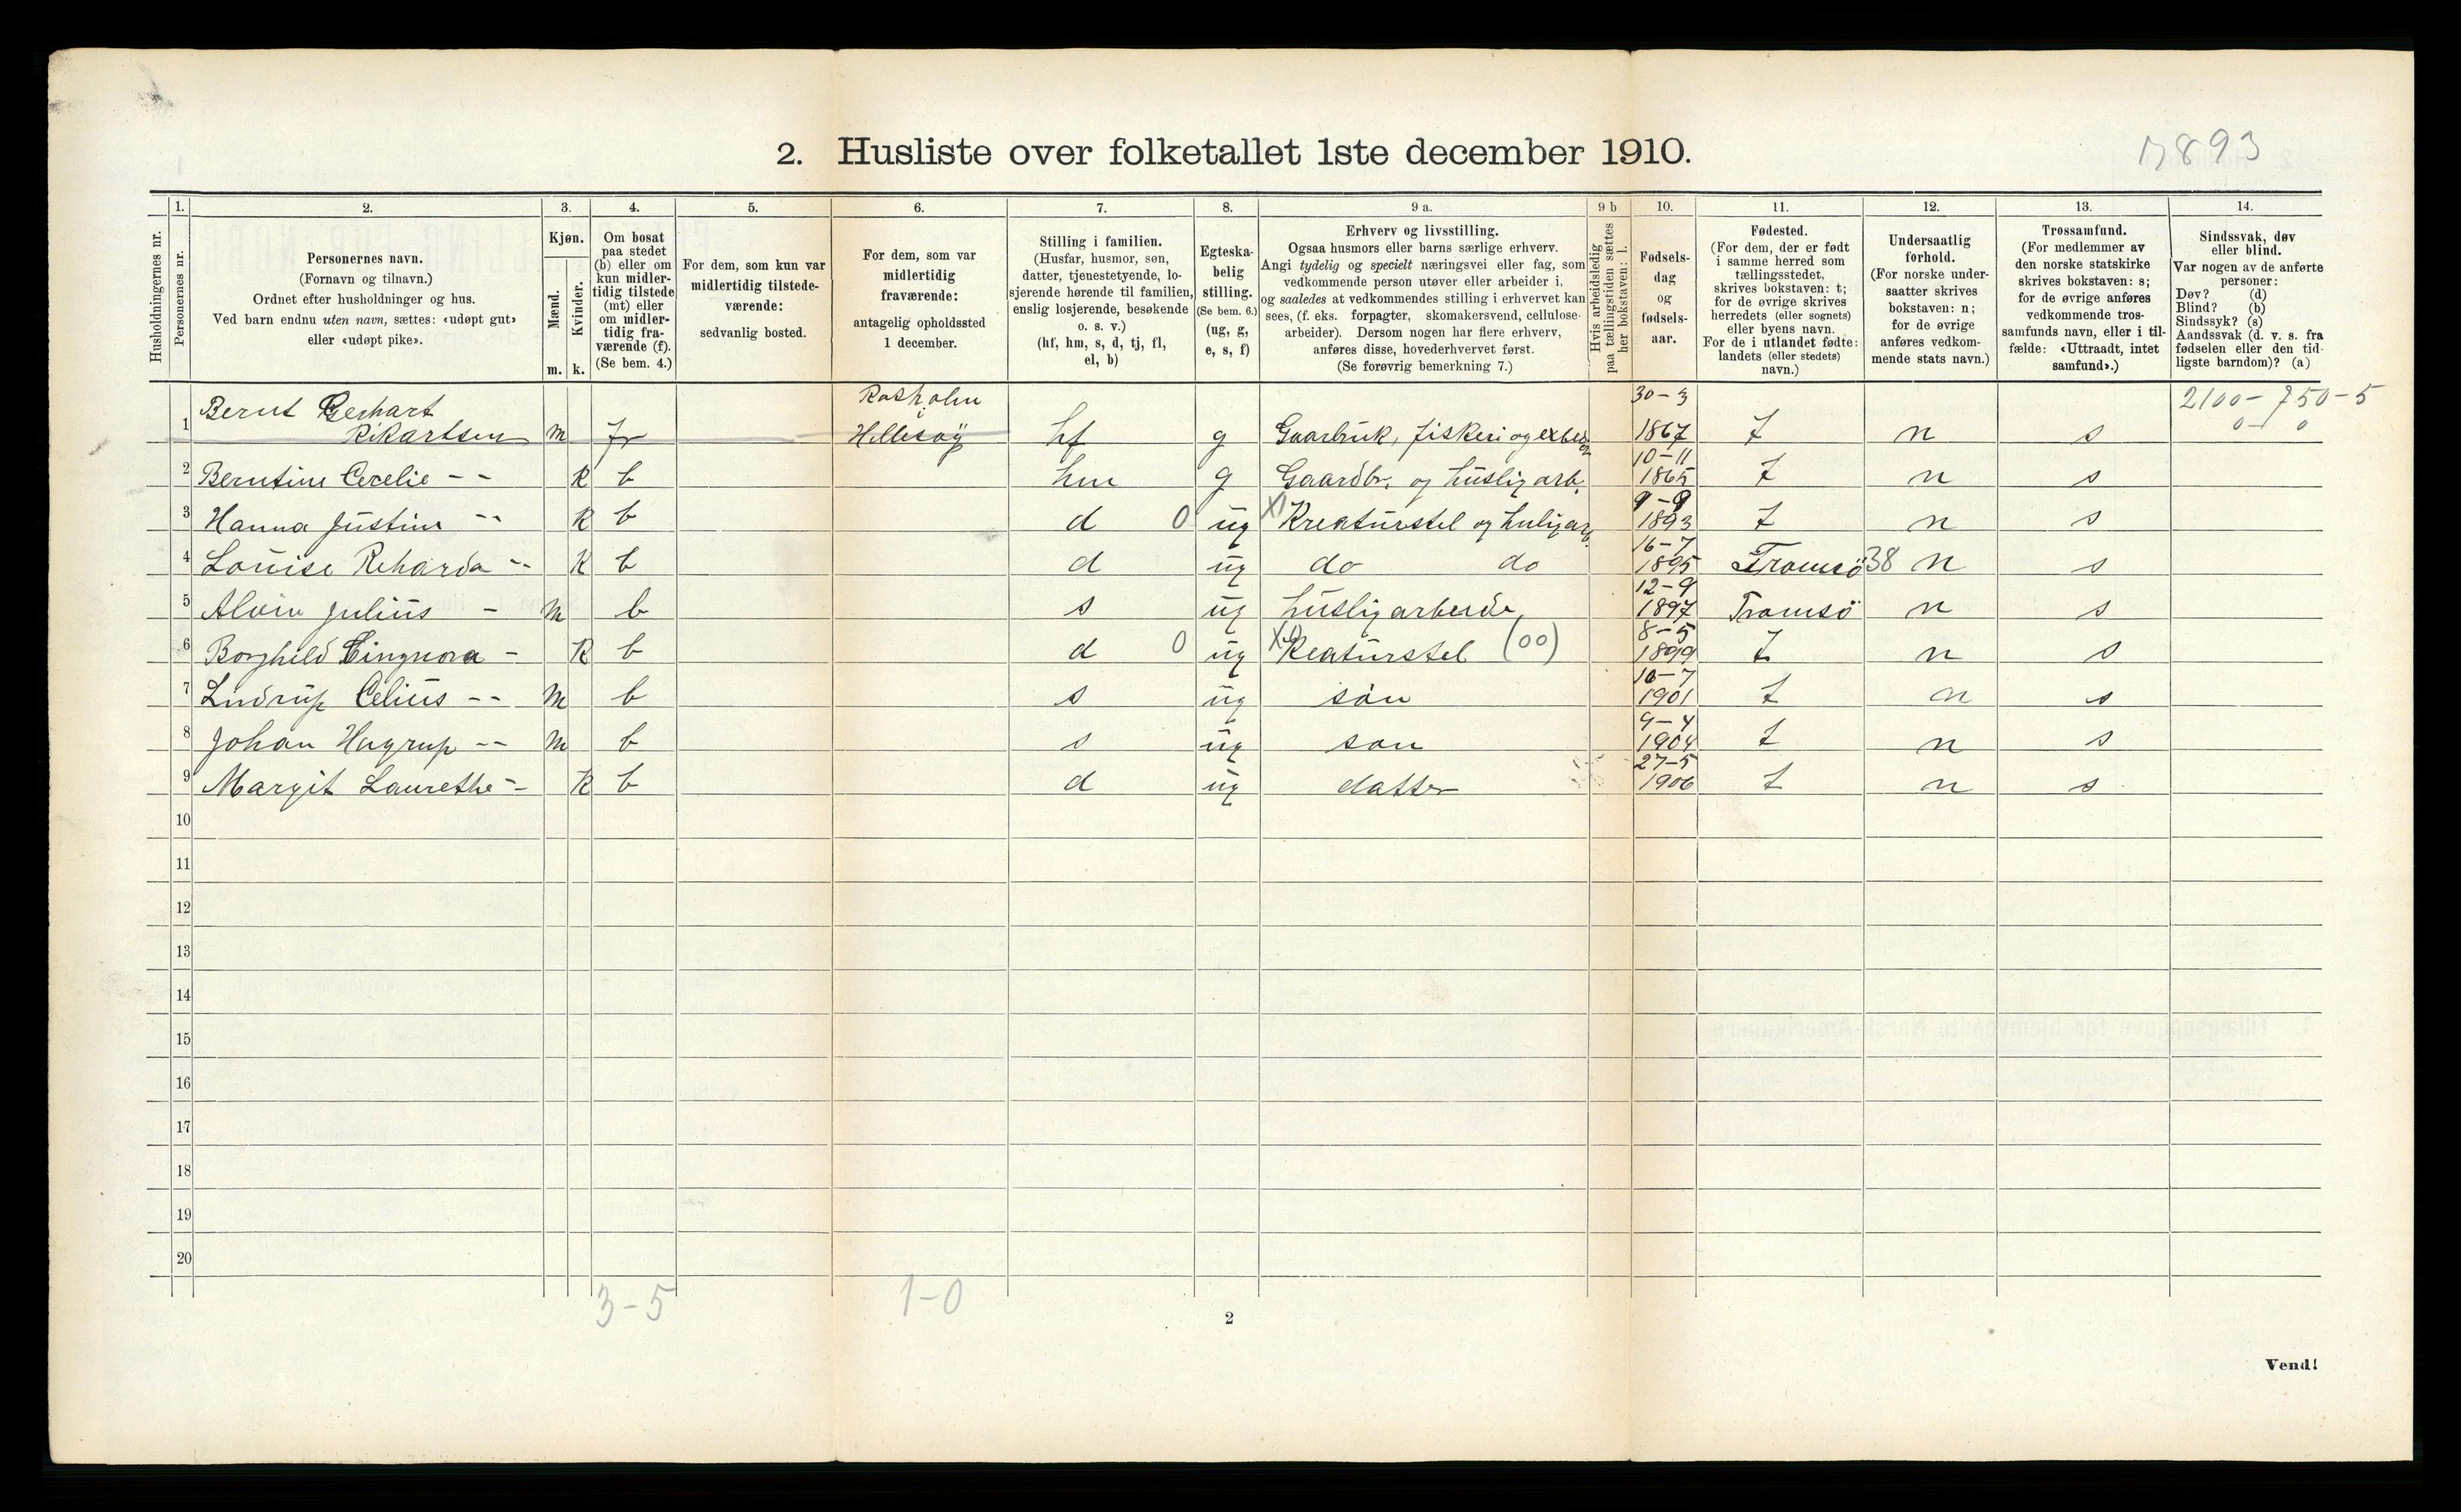 2. Husliste over folketallet 1ste december 1910.
7893
1. 2. 3. 4. 5. 6. 7. 8. 9 a. 9 b 10. 11. 12. 13. 14.
Husholdningernes nr.
Personernes nr.
Personernes navn.
(Fornavn og tilnavn.)
Ordnet efter husholdninger og hus.
Ved barn endnu uten navn, sættes: «udøpt gut»
eller «udøpt pike».
Kjøn.
Mænd.
Kvinder.
m. k.
Om bosat
paa stedet
(b) eller om
kun midler-
tidig tilstede
(mt) eller
om midler-
tidig fra-
værende (f).
(Se bem. 4.)
For dem, som kun var
midlertidig tilstede-
værende:
sedvanlig bosted.
For dem, som var
midlertidig
fraværende:
antagelig opholdssted
1 december.
Stilling i familien.
(Husfar, husmor, søn,
datter, tjenestetyende, lo-
sjerende hørende til familien,
enslig losjerende, besøkende
o. s. v.)
(hf, hm, s, d, tj, fl,
el, b)
Egteska-
belig
stilling.
(Se bem. 6.)
(ug, g,
e, s, f)
Erhverv og livsstilling.
Ogsaa husmors eller barns særlige erhverv.
Angi tydelig og specielt næringsvei eller fag, som
vedkommende person utøver eller arbeider i,
og saaledes at vedkommendes stilling i erhvervet kan
sees, (f. eks. forpagter, skomakersvend, cellulose-
arbeider). Dersom nogen har flere erhverv,
anføres disse, hovederhvervet først.
(Se forøvrig bemerkning 7.)
Hvis arbeidsledig
paa tællingstiden sættes
her bokstaven: l.
Fødsels-
dag
og
fødsels-
aar.
Fødested.
(For dem, der er født
i samme herred som
tællingsstedet,
skrives bokstaven: t;
for de øvrige skrives
herredets (eller sognets)
eller byens navn.
For de i utlandet fødte:
landets (eller stedets)
navn.)
Undersaatlig
forhold.
(For norske under-
saatter skrives
bokstaven: n;
for de øvrige
anføres vedkom-
mende stats navn.)
Trossamfund.
(For medlemmer av
den norske statskirke
skrives bokstaven: s;
for de øvrige anføres
vedkommende tros-
samfunds navn, eller i til-
fælde: «Uttraadt, intet
samfund».)
Sindssvak, døv
eller blind.
Var nogen av de anførte
personer:
Døv? (d)
Blind? (b)
Sindssyk? (s)
Aandssvak (d. v. s. fra
fødselen eller den tid-
ligste barndom)? (a)
Bernt Gerhart Rasholm 30-3 2100-750-5
1 Rikartsen m fr Hillesøy hf g Gaarbruk, fiskeri og 1867 t n s 0- 0
10-11
2 Berntine Cecelie - - K b hm g Gaardbr. og huslig arb. 1865 t n s
9-9
3 Hanna Justine -- K b d 0 ug X1 Kreaturstel og huligarb. 1893 t n s
16-7
4 Louise Reharda -- K b d ug do do 1895 Tromsö 38 n s
12-9
5 Alvin Julius - M b s ug huslig arbeide 1897 Tromsö n s
8-5
6 Borghild Eingnora - K b d 0 ug Keaturstel (00) 1899 t n s
10-7
7 Lndrup Celius -- M b s ug søn 1901 t n s
9-4
8 Johan Hagrup -- M b s ug søn 1904 t n s
27-5
9 Margit Laurethe -- K b d ug datter 1906 t n s
10
11
12
13
14
15
16
17
18
19
20
3-5 1-0
2
Vend!